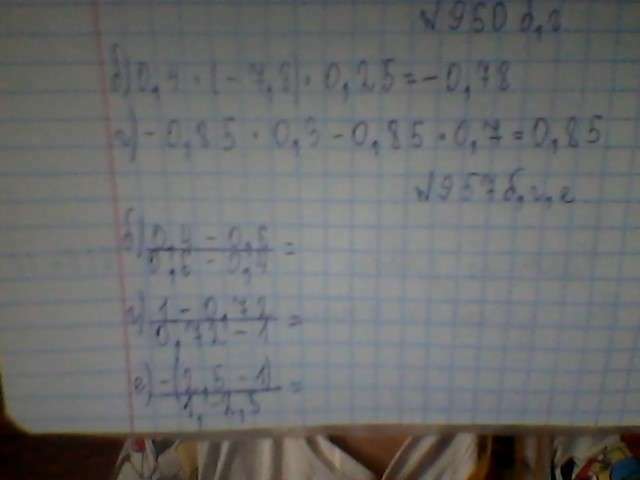 №950 б, г
б) 0,4 · (-7,8) · 0,25 = -0,78
г) -0,85 · 0,3 - 0,85 · 0,7 = 0,85
№957 б, г, е
б) 0,4 - 0,6 / 0,6 - 0,4 =
г) 1 - 0,72 / 0,72 - 1 =
е) -(2,5 - 1) / =